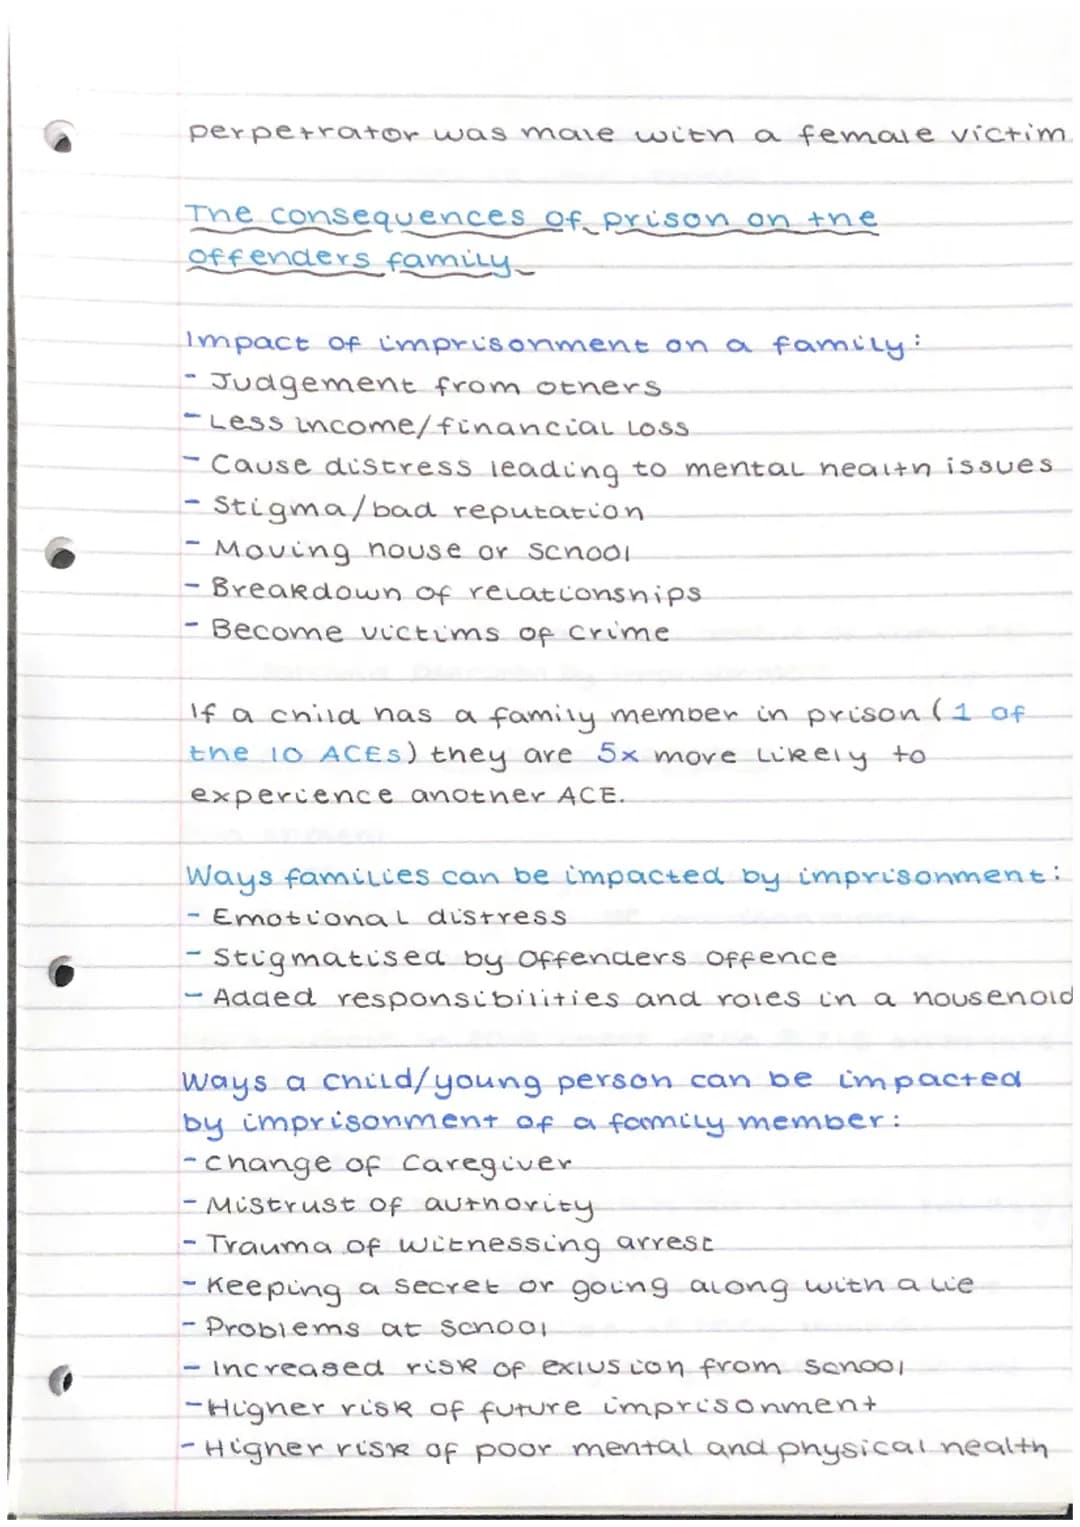 perpetrator was male with a female victim
The consequences of prison on the
offenders family
Impact of imprisonment on a family:
- Judgement from others
- Less income/financial loss
- Cause distress leading to mental health issues
- Stigma/bad reputation
- Moving house or school
- Breakdown of relationships
- Become victims of crime
If a child has a family member in prison (1 of
the 10 ACEs) they are 5x more likely to
experience another ACE.
Ways families can be impacted by imprisonment:
- Emotional distress
- Stigmatised by offenders offence
- Added responsibilities and roles in a household
Ways a child/young person can be impacted
by imprisonment of a family member:
- Change of caregiver
- Mistrust of authority
- Trauma of witnessing arrest
- Keeping a secret or going along with a lie
- Problems at school
- Increased risk of exlusion from school
- Higher risk of future imprisonment
- Higher risk of poor mental and physical health